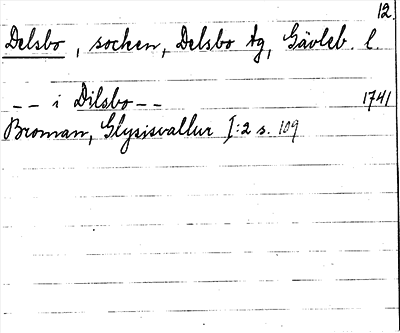 12.
Delsbo, socken, Delsbo tg, Gävleb. l.
-- i Dilsbo -- 1741
Broman, Glysisvallur I:2 s. 109